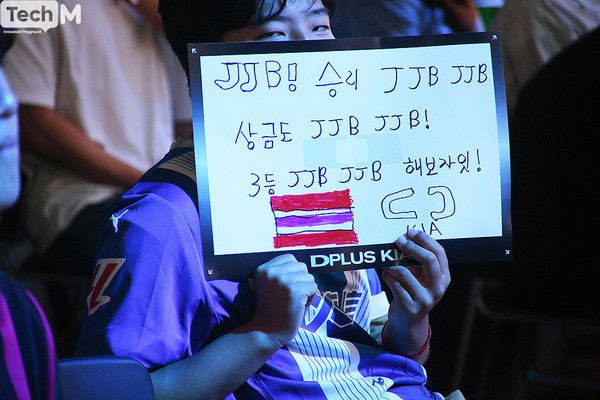 TechM
Innovators' Playground
JJB! 승리 JJB JJB
상금도 JJB JJB!
3등 JJB JJB 해보자잇!
KIA
DPLUS KIA